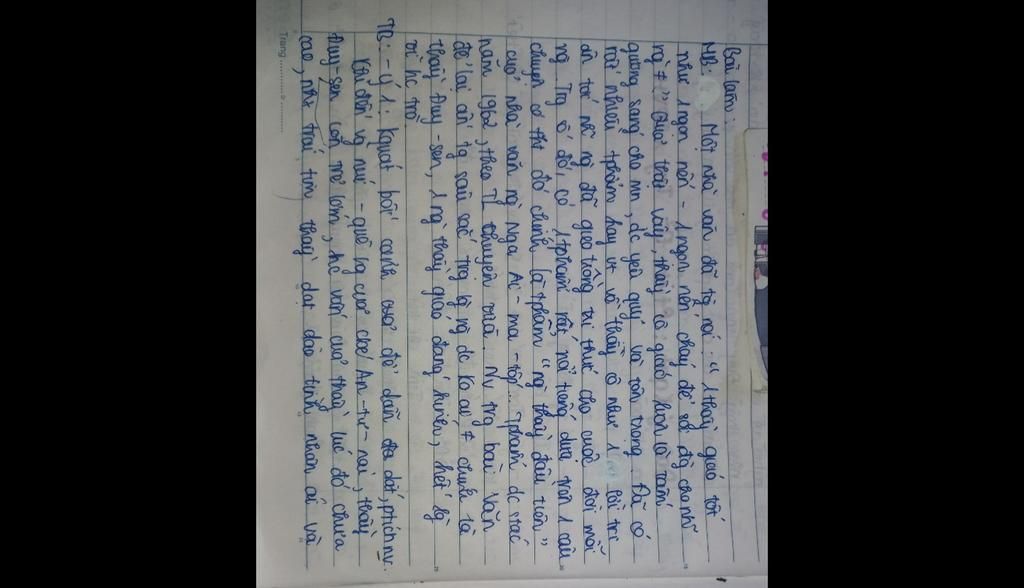 Bài làm:
MB: Một nhà văn đã từng nói: "1 thầy giáo tốt
như 1 ngọn nến - 1 ngọn nến cháy để soi đg cho nhữ
ng ≠". Quả thật vậy, thầy cô giáo luôn là tấm
gương sáng cho mn, dc yêu quý và tôn trọng. Đã có
rất nhiều tphẩm hay vt về thầy cô như 1 lời tri
ân tới nh ng đã gieo trồng tri thức cho cuộc đời mỗi
ng. Trg số đó, có 1 tphẩm rất nổi tiếng dựa trên 1 câu
chuyện có tht đó chính là tphẩm "ng thầy đầu tiên"
của nhà văn ng Nga Ai-ma-tốp. Tphẩm dc stác
năm 1962, theo TL truyện vừa. Nv trg bài văn
để lại ấn tg sâu sắc trg lg ng đc ko ai ≠ chính là
thầy Đuy-sen, 1 ng thầy giáo đáng kính, hết lg
vì hc trò.
TB: - ý 1: Kquát bối cảnh của để dẫn dắt, ptích nv.
Khi đến vg núi - quê hg của cbé An-tư-nai, thầy
Đuy-sen còn trẻ lắm, hc vấn của thầy lúc đó chưa
cao, nhg trái tim thầy dạt dào tình nhân ái và
Trang